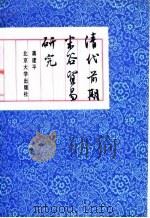 清代前期
米谷贸易
研究
蒋建平
北京大学出版社